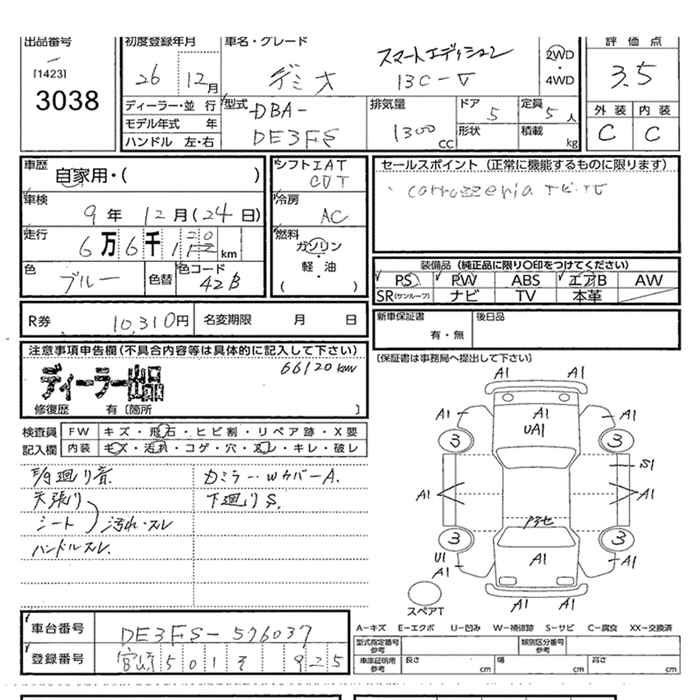 出品番号
[1423]
3038
初度登録年月
26 12月
車名・グレード
スマートエディション
デミオ 13C-V
2WD
・
4WD
評価点
3.5
外装 内装
C C
ディーラー・並行
モデル年式 年
ハンドル 左・右
型式
DBA-
DE3FS
排気量
1300 CC
ドア
5
形状
定員
5人
積載
kg
車歴
自家用・( )
車検
9年 12月(24日)
走行
6万6千1 20 km
色
ブルー
色替
色コード
42B
シフト IAT
CVT
冷房
AC
燃料
ガソリン
・
軽・油
( )
セールスポイント (正常に機能するものに限ります)
carrozzeria ナビ・TV
装備品 (純正品に限り○印をつけてください)
PS PW ABS エアB AW
SR(サンルーフ) ナビ TV 本革
R券 10,310円 名変期限 月 日
新車保証書
有・無
後日品
(保証書は事務局へ提出して下さい)
注意事項申告欄(不具合内容等は具体的に記入して下さい)
66120km
ディーラー出品
修復歴 有〔箇所 〕
検査員
記入欄
FW キズ・飛石・ヒビ割・リペア跡・X要
内装 キズ・汚れ・コゲ・穴・スレ・キレ・破レ
廻り音
天張り
シート
汚れ・スレ
ハンドルスレ
カミラーWカバーA.
下廻りS.
A1
A1 A1 A1
UA1
3 3
S1
A1 A1
アクセ
3 3
U1
A1 A1 A1
スペアT
A1 A1
A-キズ E-エクボ U-凹み W-補修跡 S-サビ C-腐食 XX-交換済
車台番号 DE3FS-576037
登録番号 宮崎 501 そ 925
型式指定番号
参考
類別区分番号
参考
車庫証明用
参考
長さ cm 幅 cm 高さ cm